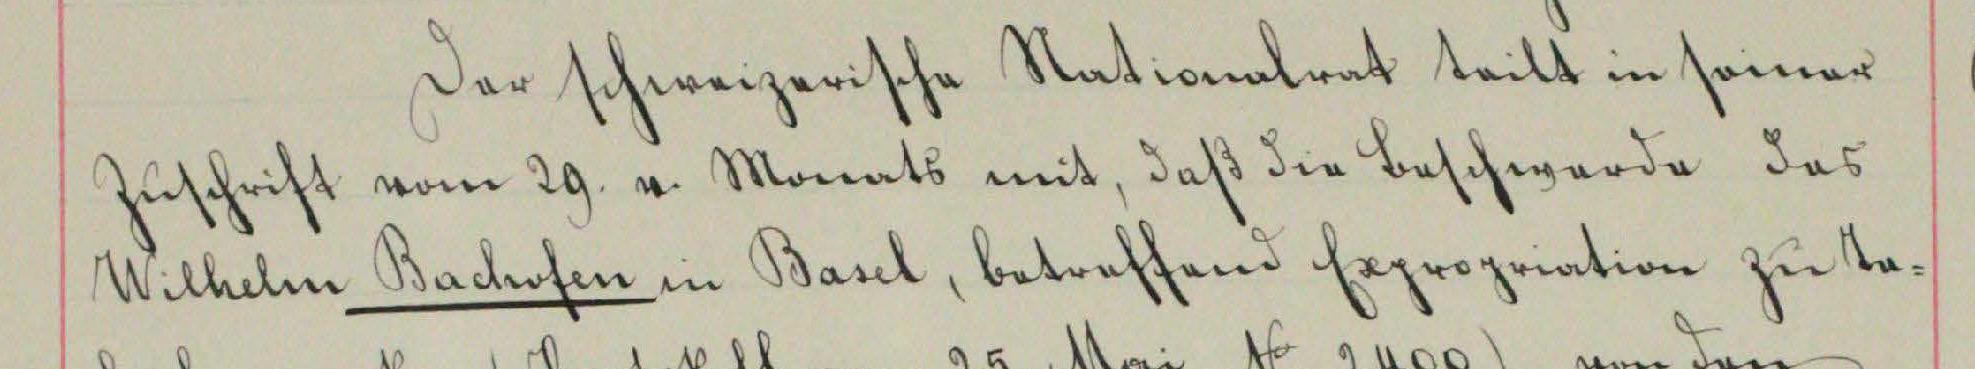 Der schweizerische Nationalrat teilt in seiner
Zuschrift vom 29. v. Monats mit, daß die Beschwerde des
Wilhelm Bachofen in Basel, betreffend Expropriation zu Ta-
25. Mai No 2400) von den